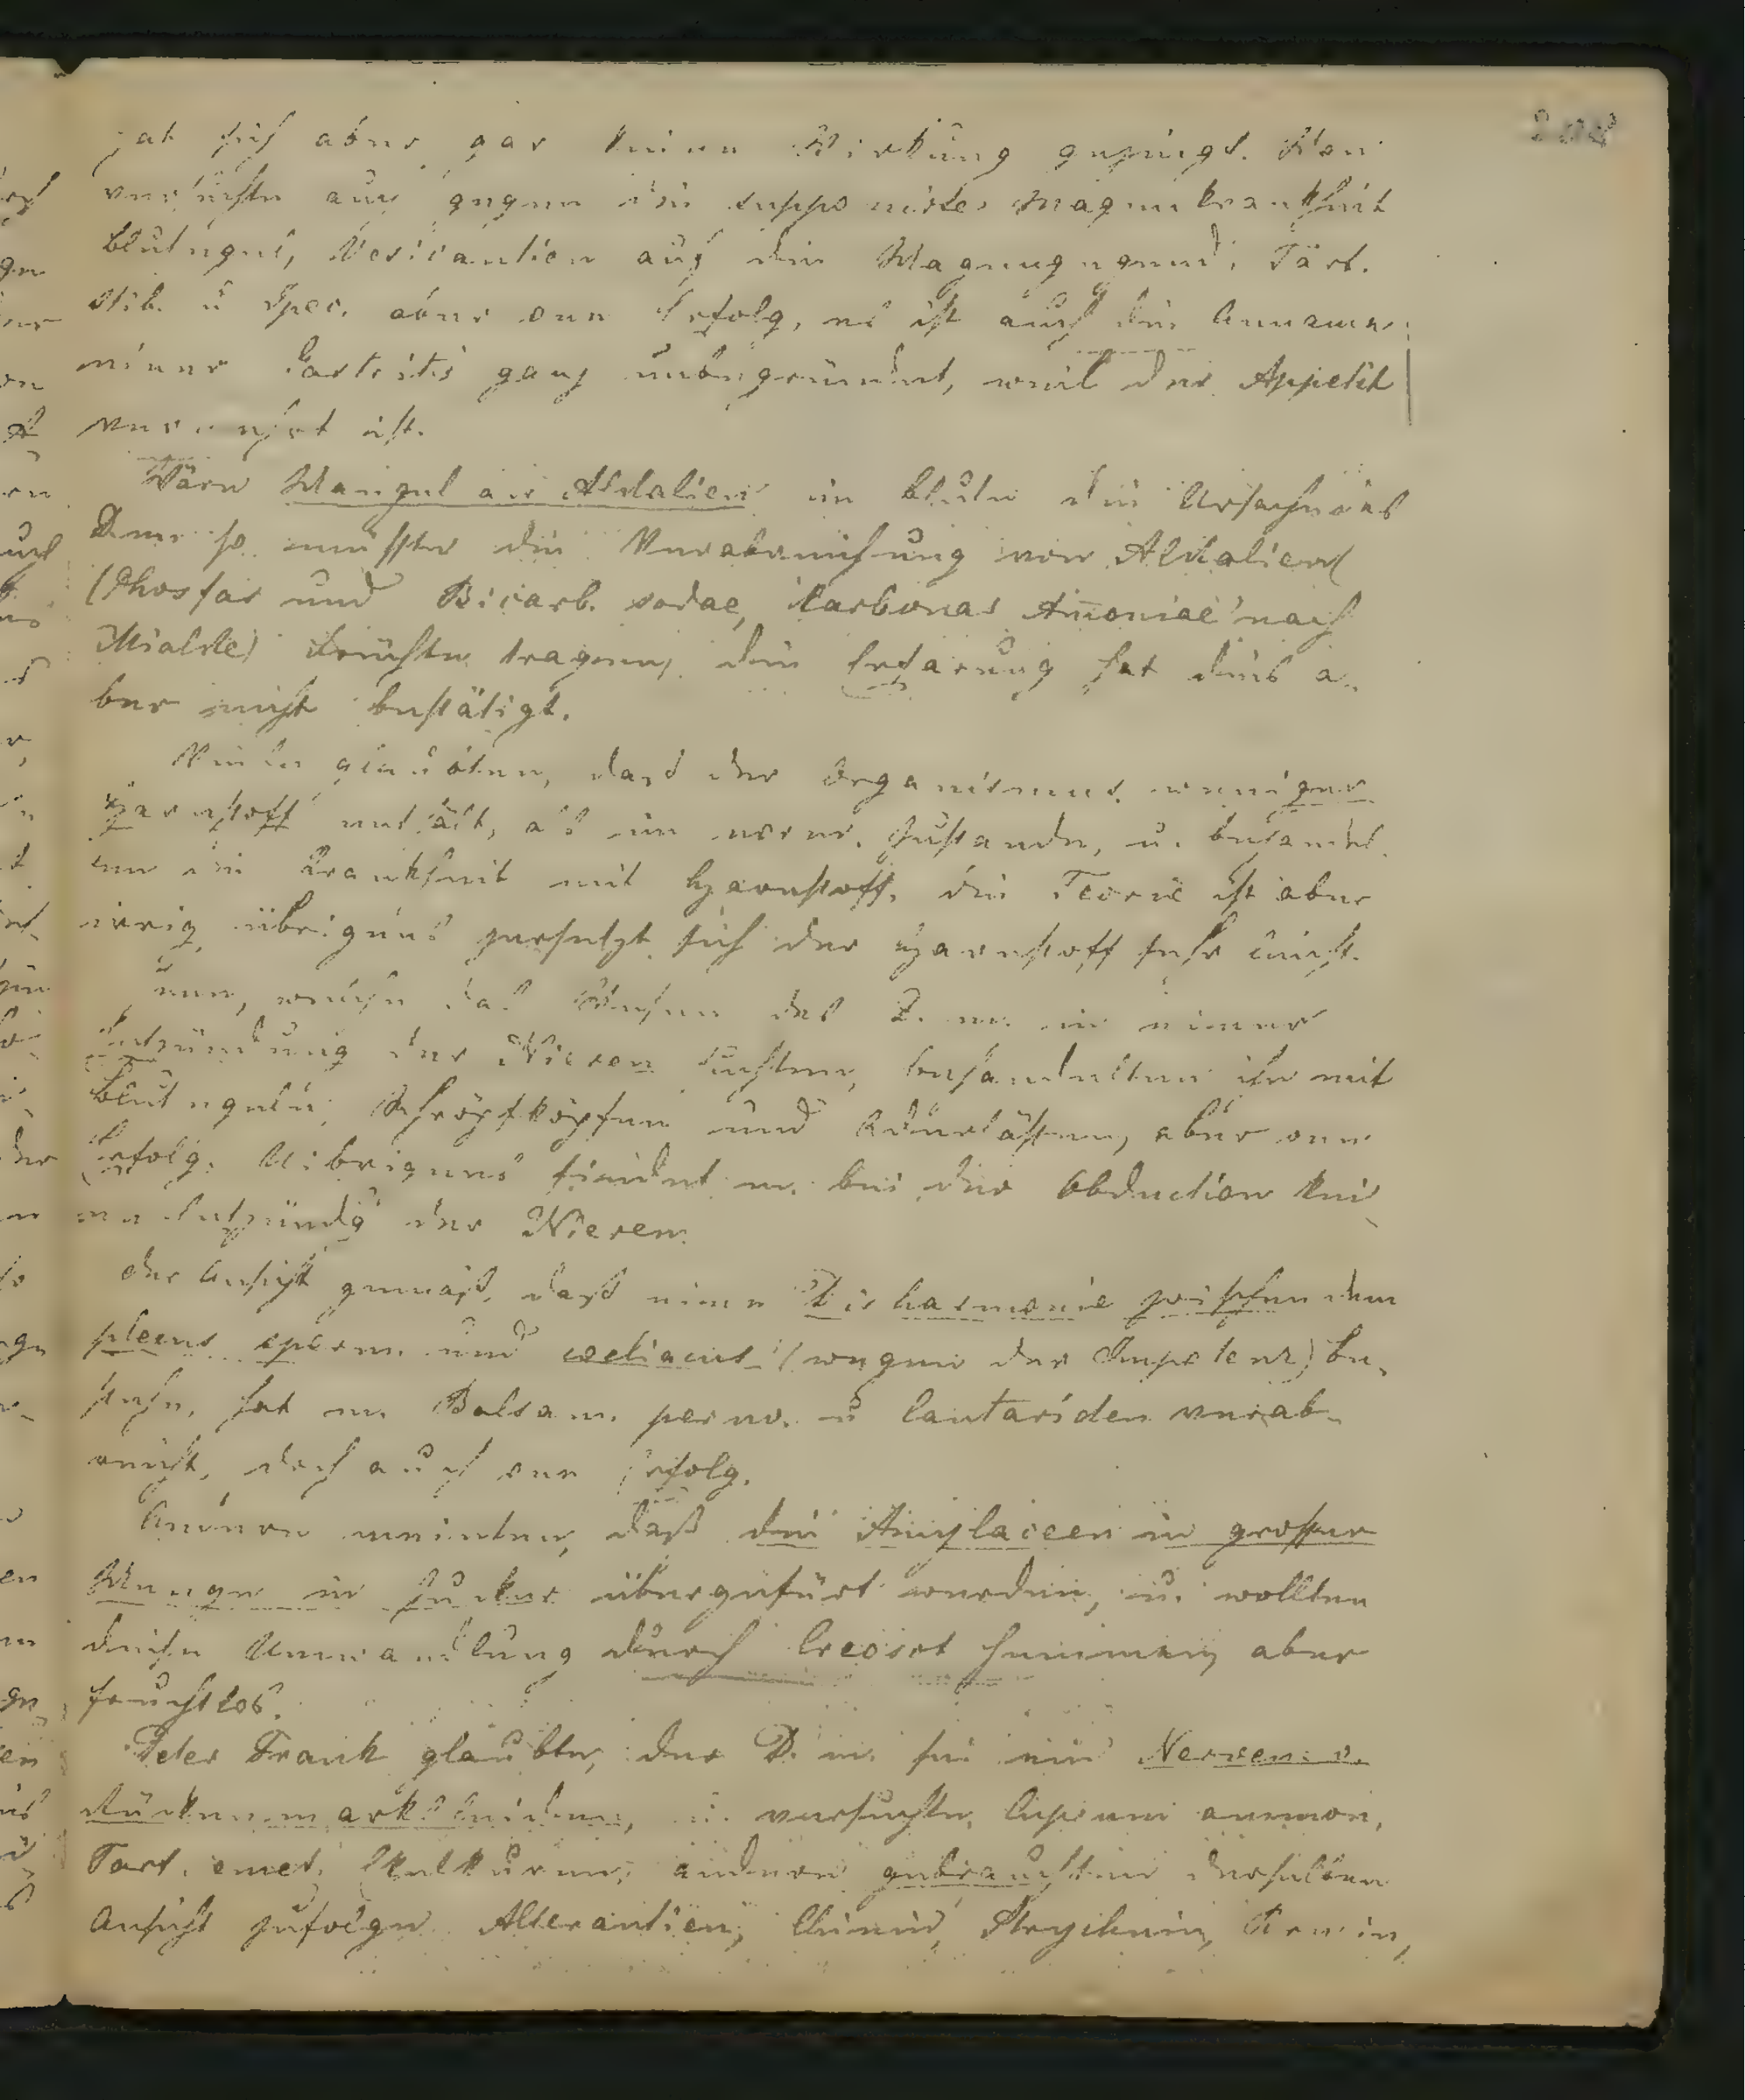 hat sich aber gar keine Wirkung gezeigt. Man
versuchte auch gegen die supponirte Magenkrankheit
Blutegel, Vesicantien auf die Magengegend, Tart.
stib. u Ipec. aber one Erfolg, es ist auch die Anname
einer Gastritis ganz unbegründet, weil der Appetit
vermehrt ist.
Wäre Mangel an Alkalien im Blute die Ursache des
D. m. so müsste die Verabreichung von Alkalien
(Phosfas und Bicarb. sodae, Carbonas Amoniae nach
Mialhe) Früchte tragen, die Erfarung hat dies a-
ber nicht bestätigt.
Viele glaubten, dass der Organismus weniger
Harnstoff enthält, als im norm. Zustande, u. behandel-
ten die Krankheit mit Harnstoff, die Teorie ist aber
irrig, übrigens zersetzt sich der Harnstoff sehr leicht.
welche das Wesen des D. m. in einer
Entzündung der Nieren suchten, behandelten ihn mit
Blutegeln, Schröpfköpfen und Aderlässen, aber one
Erfolg. Uibrigens findet m. bei der Obduction kei-
ne Entzündg der Nieren.
Der Ansicht gemäss, dass eine Disharmonie zwischen dem
plexus sperm. und coeliacus (wegen der Impotenz) be-
stehe, hat m. Balsam. peruv. u Cantariden verab-
reicht, doch auch one Erfolg.
Andere meinten, dass die Amylaceen in grosser
Menge in Zucker übergefürt werden, u. wollten
diese Umwandlung durch Creosot hemmen, aber
fruchtlos.
Peter Frank glaubte, der D. m. sei ein Nerven- o.
Rückenmarksleiden, u. versuchte Cuprum ammon.
Tart. emet. Ekelkuren; andere gebrauchten derselben
Ansicht zufolge Alterantien, Chinin, Strychnin,